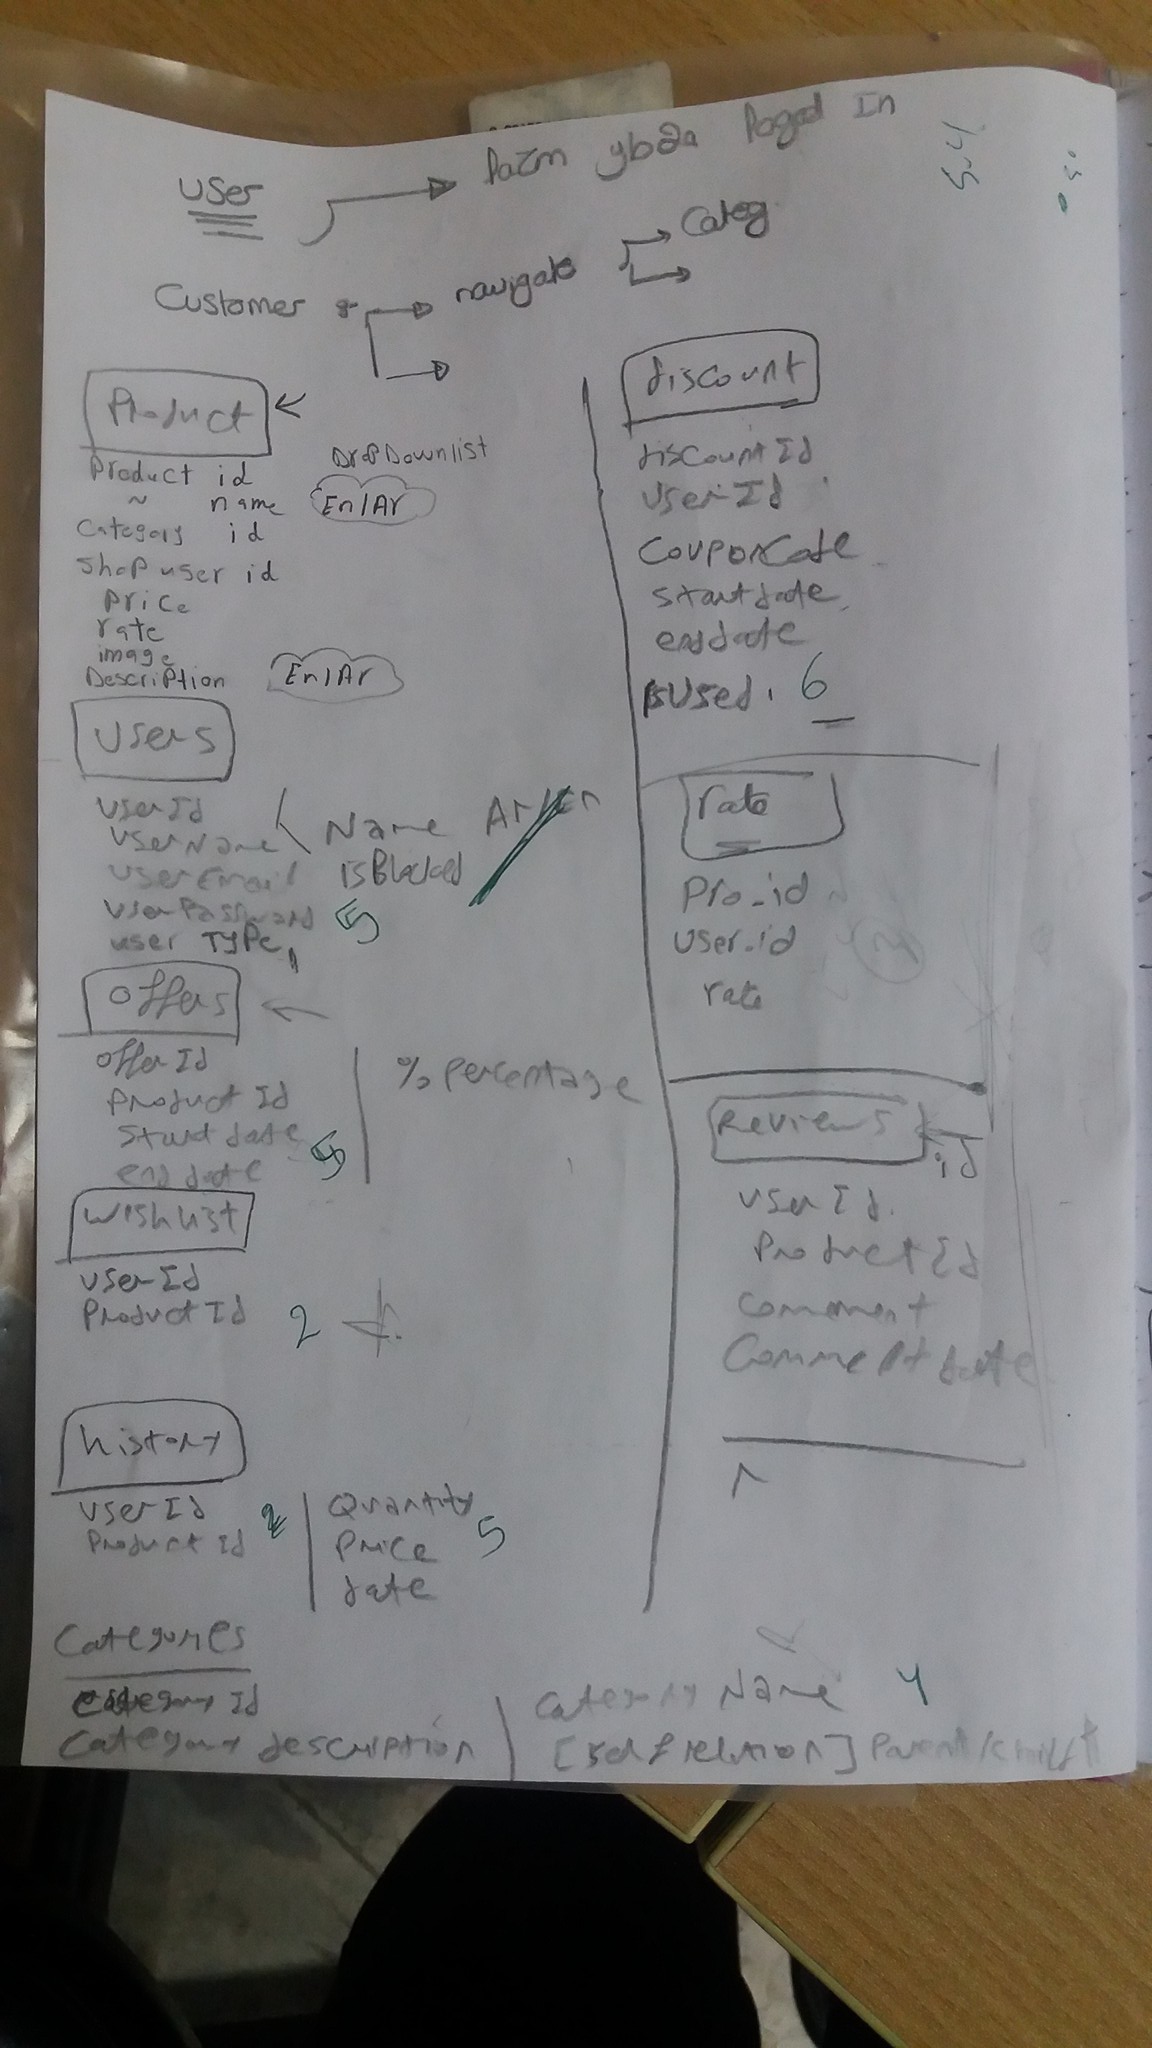 User
lazm yb2a loged In
Customer
navigate
Categ.
Product
Product id
~ name
DropDownlist
En/Ar
Category id
Shop user id
Price
rate
image
Description
En/Ar
Users
UserId
UserName
UserEmail
UserPassword
user TYPe
Name Ar/En
isBlocked
5
Offers
OfferId
ProductId
Start date
end date
5
% Percentage
Wishlist
UserId
ProductId
2
history
UserId
ProductId
2
Quantity
Price
date
5
Categories
Category Id
Category description
Category Name
4
[Self relation] Parent/child
discount
discountId
UserId
CouponCode
startdate
enddate
isUsed.
6
rate
Pro_id
User_id
rate
3
Reviews
id
UserId
ProductId
Comment
Comment date